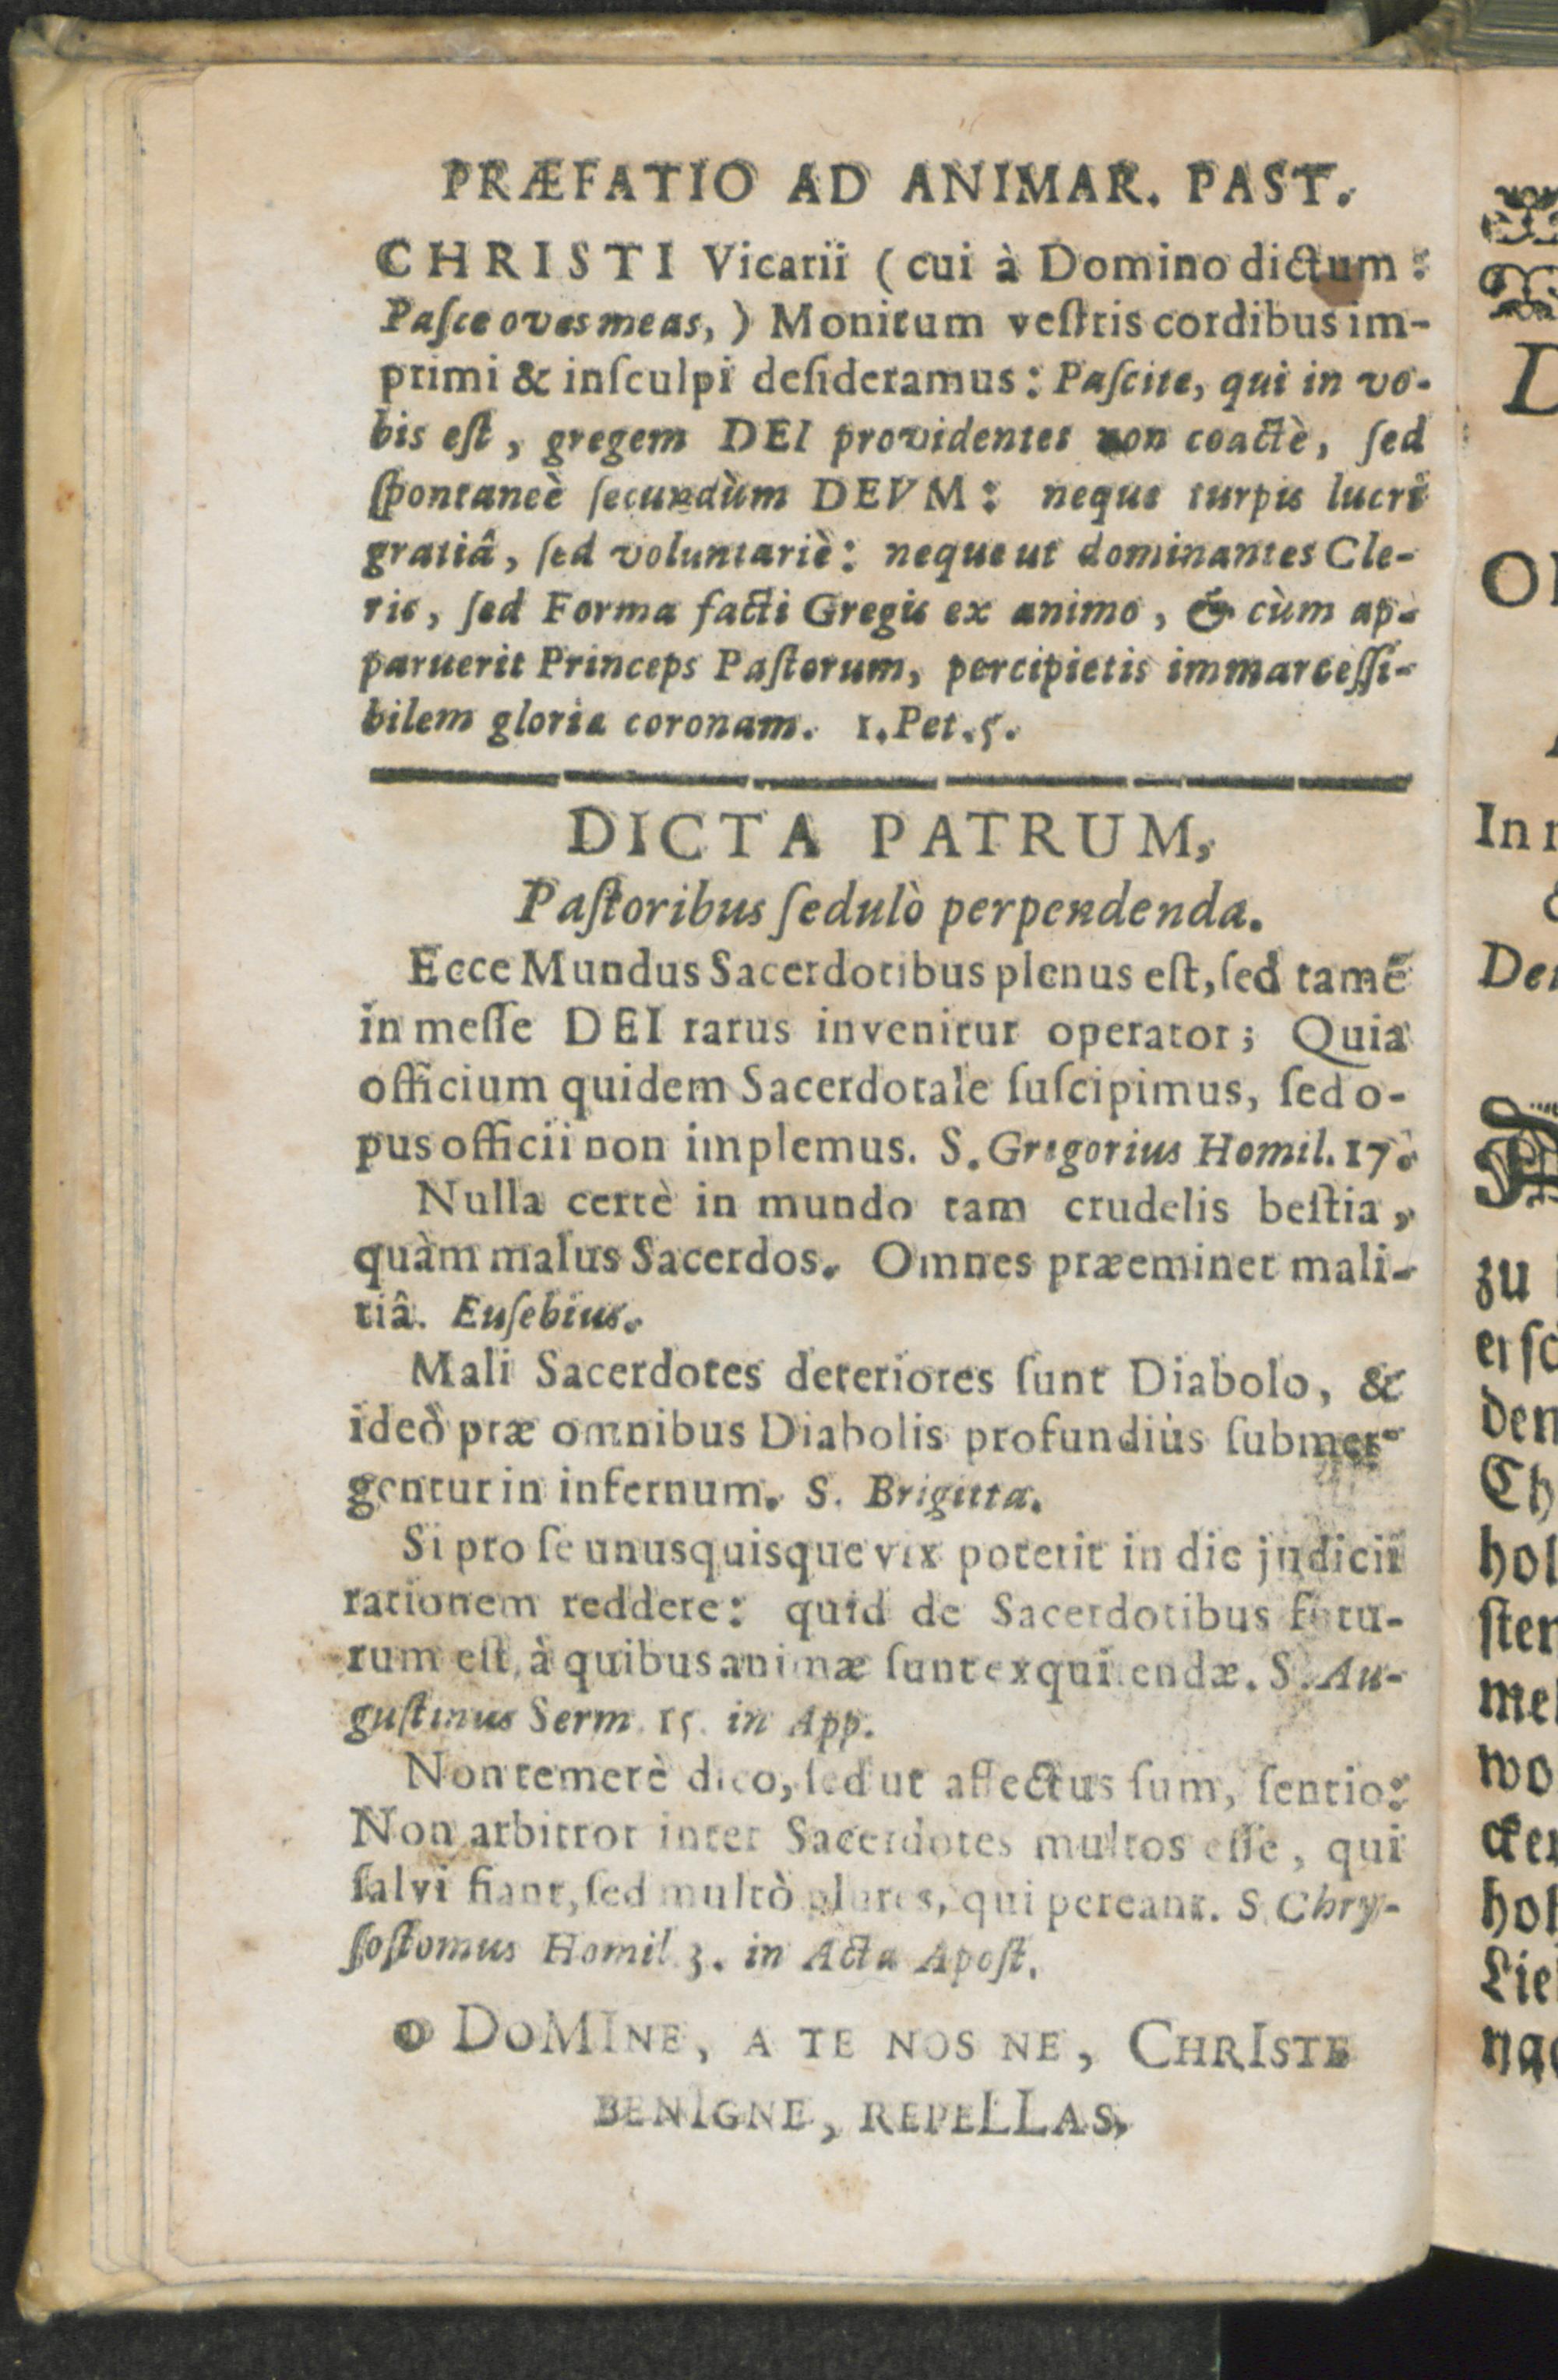 PRÆFATIO AD ANIMAR. PAST.
CHRISTI Vicarii (cui à Domino dictum:
Paſce oves meas,) Monitum veſtris cordibus im-
primi & inſculpi deſideramus: Paſcite, qui in vo-
bis eſt, gregem DEI providentes non coactè, ſed
ſpontaneè ſecundùm DEVM: neque turpis lucri
gratiâ, ſed voluntariè: neque ut dominantes Cle-
ris, ſed Forma facti Gregis ex animo, & cùm ap-
paruerit Princeps Paſtorum, percipietis immarceſſi-
bilem gloriæ coronam. 1. Pet. 5.
DICTA PATRUM,
Paſtoribus ſedulò perpendenda.
Ecce Mundus Sacerdotibus plenus eſt, ſed tamē
in meſſe DEI rarus invenitur operator; Quia
officium quidem Sacerdotale ſuſcipimus, ſed o-
pus officii non implemus. S. Gregorius Homil. 17.
Nulla certè in mundo tam crudelis beſtia,
quàm malus Sacerdos. Omnes præeminet mali-
tiâ. Euſebius.
Mali Sacerdotes deteriores ſunt Diabolo, &
ideò præ omnibus Diabolis profundiùs ſubmer-
gentur in infernum. S. Brigitta.
Si pro ſe unusquisque vix poterit in die judicii
rationem reddere: quid de Sacerdotibus futu-
rum eſt, à quibus animæ ſunt exquirendæ. S. Au-
guſtinus Serm. 15. in App.
Non temerè dico, ſed ut affectus ſum, ſentio:
Non arbitror inter Sacerdotes multos eſſe, qui
ſalvi fiant, ſed multò plures, qui pereant. S. Chry-
ſoſtomus Homil. 3. in Acta Apoſt.
O DoMINE, A TE NOS NE, CHRISTE
BENIGNE, REPELLAS,
D
In
zu
den
Ch
hol